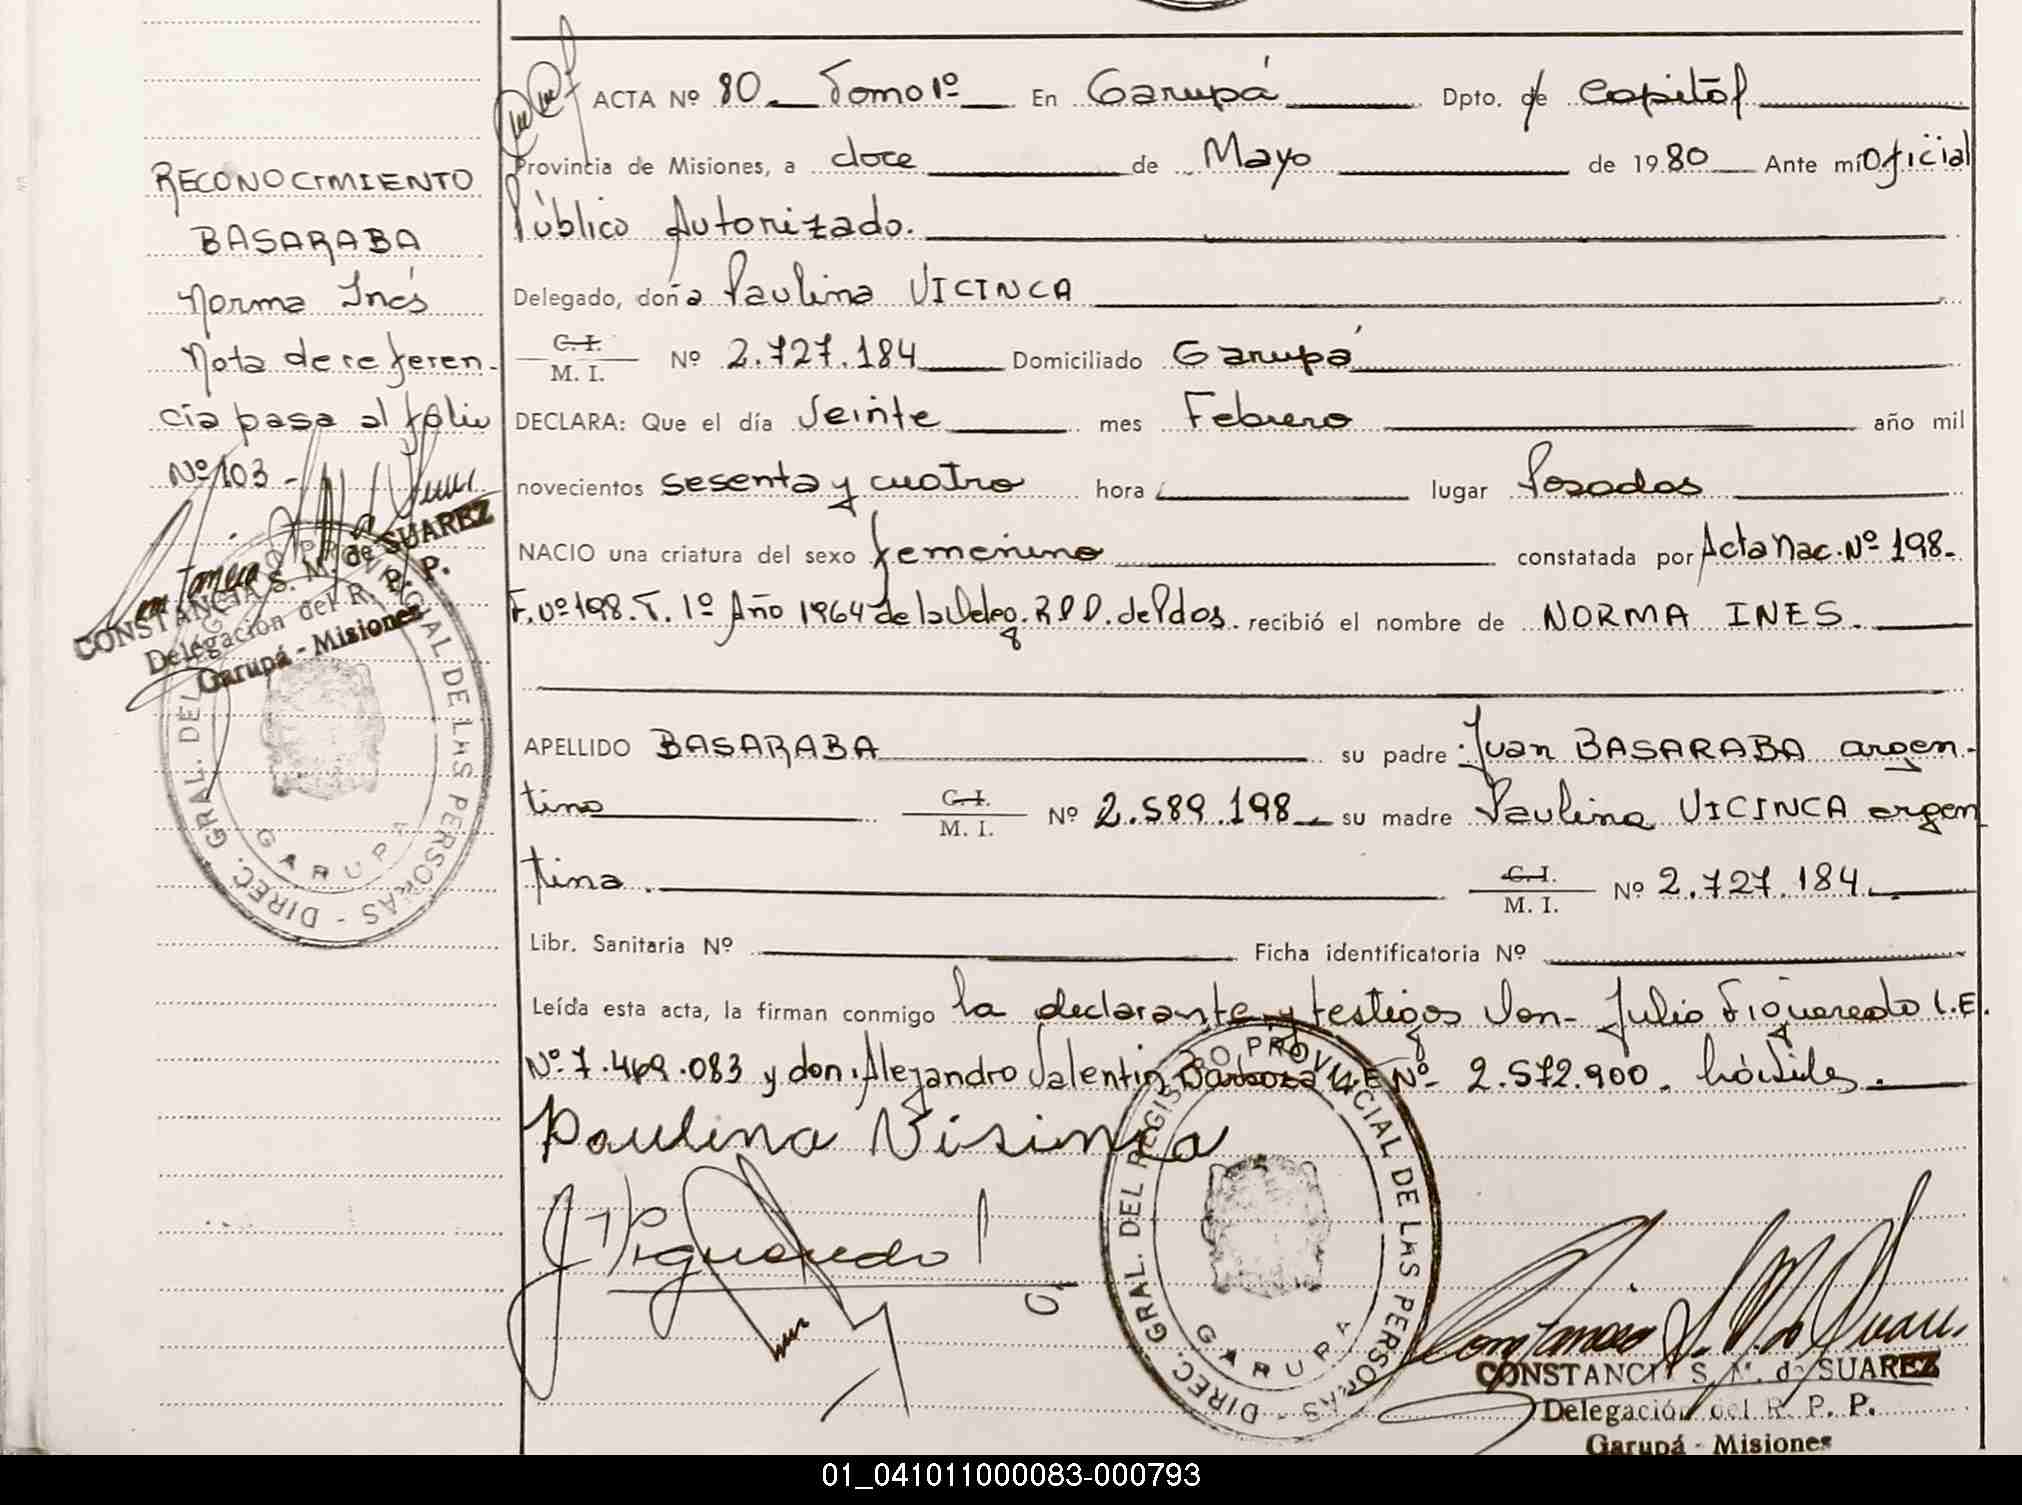 RECONOCIMIENTO
BASARABA
Norma Inés
Nota de referen-
cia pasa al folio
Nº 103 -
CONSTANCIA S. M. de SUAREZ
Delegación del R. P. P.
Garupá - Misiones
DIREC. GRAL. DEL REGISTRO PROVINCIAL DE LAS PERSONAS -
GARUPA
ACTA Nº 80 Tomo 1º En Garupá Dpto. de Capital
Provincia de Misiones, a doce de Mayo de 1980 Ante mí Oficial
Público Autorizado.
Delegado, doña Paulina VICINCA
C. I.
M. I. Nº 2.727.184 Domiciliado Garupá
DECLARA: Que el día Veinte mes Febrero año mil
novecientos sesenta y cuatro hora lugar Posadas
NACIO una criatura del sexo femenino constatada por Acta Nac. Nº 198-
F. Nº 198. T. 1º Año 1964 de la Deleg. R.P.P. de Pdos. recibió el nombre de NORMA INES.
APELLIDO BASARABA su padre Juan BASARABA argen-
tino C. I. M. I. Nº 2.589.198 su madre Paulina VICINCA argen
tina. C. I. M. I. Nº 2.727.184
Libr. Sanitaria Nº Ficha identificatoria Nº
Leída esta acta, la firman conmigo la declarante y testigos Don- Julio Figueredo L.E.
Nº 7.469.083 y don Alejandro Valentin Barboza L.E Nº 2.572.900. hábiles.
Paulina Visinca
J. Figueredo
DIREC. GRAL. DEL REGISTRO PROVINCIAL DE LAS PERSONAS -
GARUPA
Constancia S. M. de Suarez
CONSTANCIA S. M. de SUAREZ
Delegación del R. P. P.
Garupá - Misiones
01_041011000083-000793